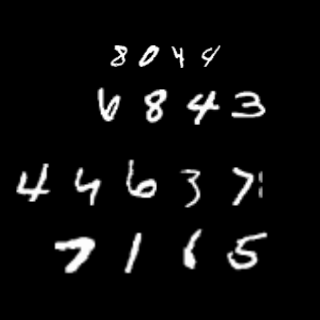 8044
6843
44637
7165